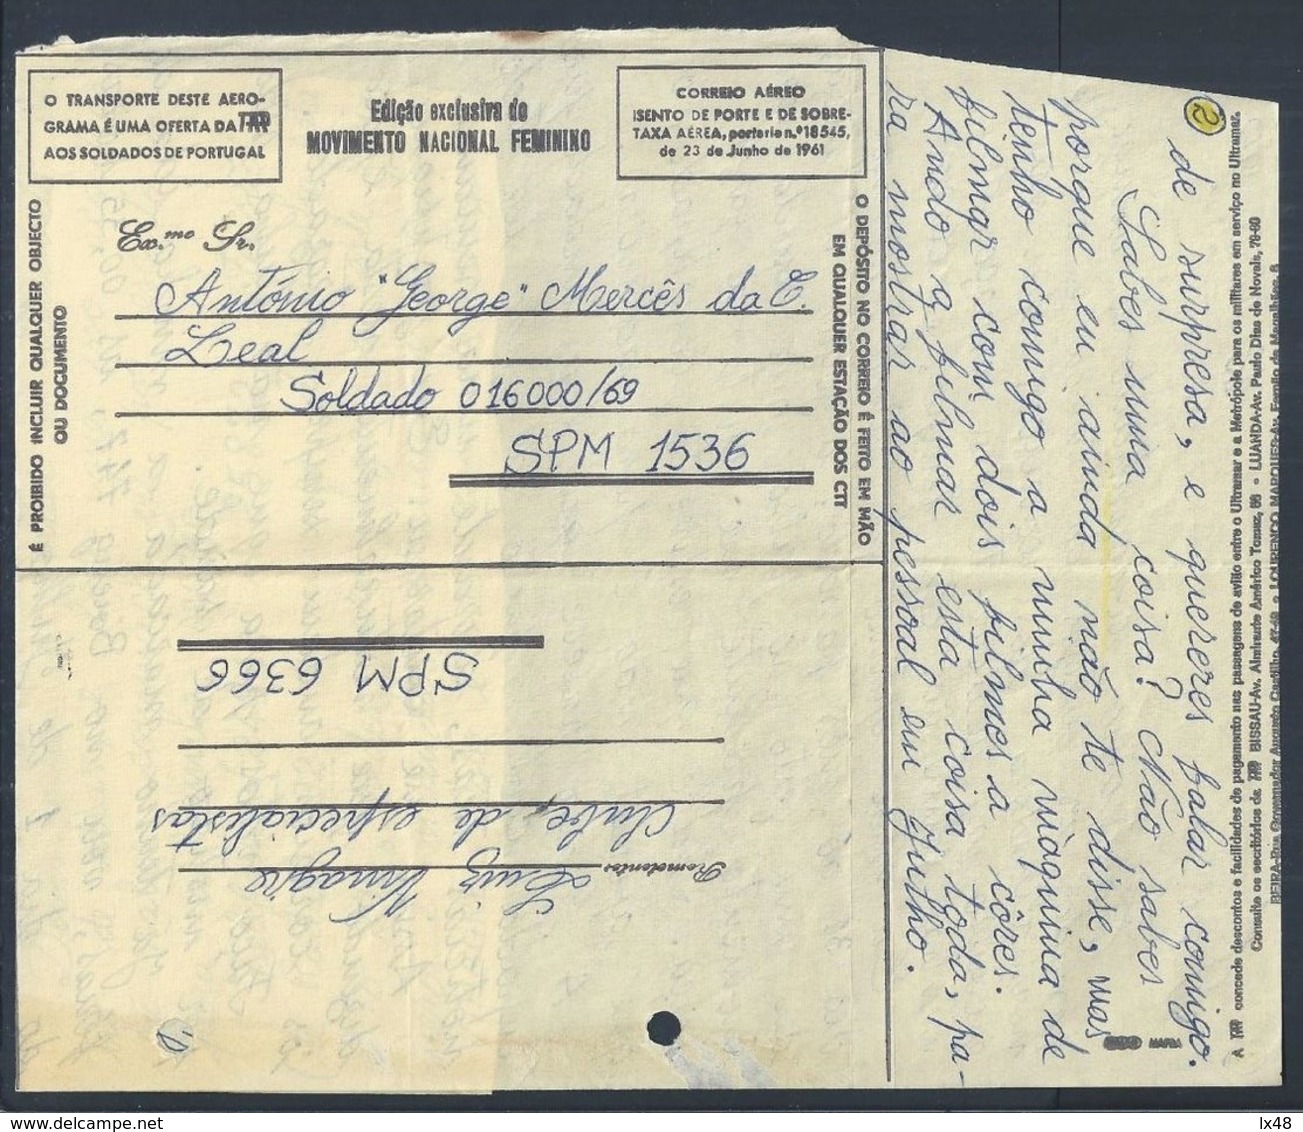 O TRANSPORTE DESTE AERO-
GRAMA É UMA OFERTA DA TAP
AOS SOLDADOS DE PORTUGAL
Edição exclusiva do
MOVIMENTO NACIONAL FEMININO
CORREIO AÉREO
ISENTO DE PORTE E DE SOBRE-
TAXA AÉREA, portaria n.º 18545,
de 23 de Junho de 1961
É PROIBIDO INCLUIR QUALQUER OBJECTO
OU DOCUMENTO
O DEPÓSITO NO CORREIO É FEITO EM MÃO
EM QUALQUER ESTAÇÃO DOS CTT
Ex.mo Sr.
António "George" Mercês da C.
Leal
Soldado 016000/69
SPM 1536
Remetente:
Luiz Vinagre
Clube de especialistas
SPM 6366
2
de surpresa, e quereres falar comigo.
Sabes uma coisa? Não sabes
porque eu ainda não te disse, mas
tenho comigo a minha máquina de
filmar com dois filmes a côres.
Ando a filmar esta coisa toda, pa-
ra mostrar ao pessoal em Julho.
A TAP concede descontos e facilidades de pagamento nas passagens de avião entre o Ultramar e a Metrópole para os militares em serviço no Ultramar.
Consulte os escritórios da TAP BISSAU-Av. Almirante Américo Tomaz, - LUANDA-Av. Paulo Dias de Novais, 78-80
BEIRA-Rua Governador Augusto Castilho, - LOURENÇO MARQUES-Av.
MAFRA
lx48